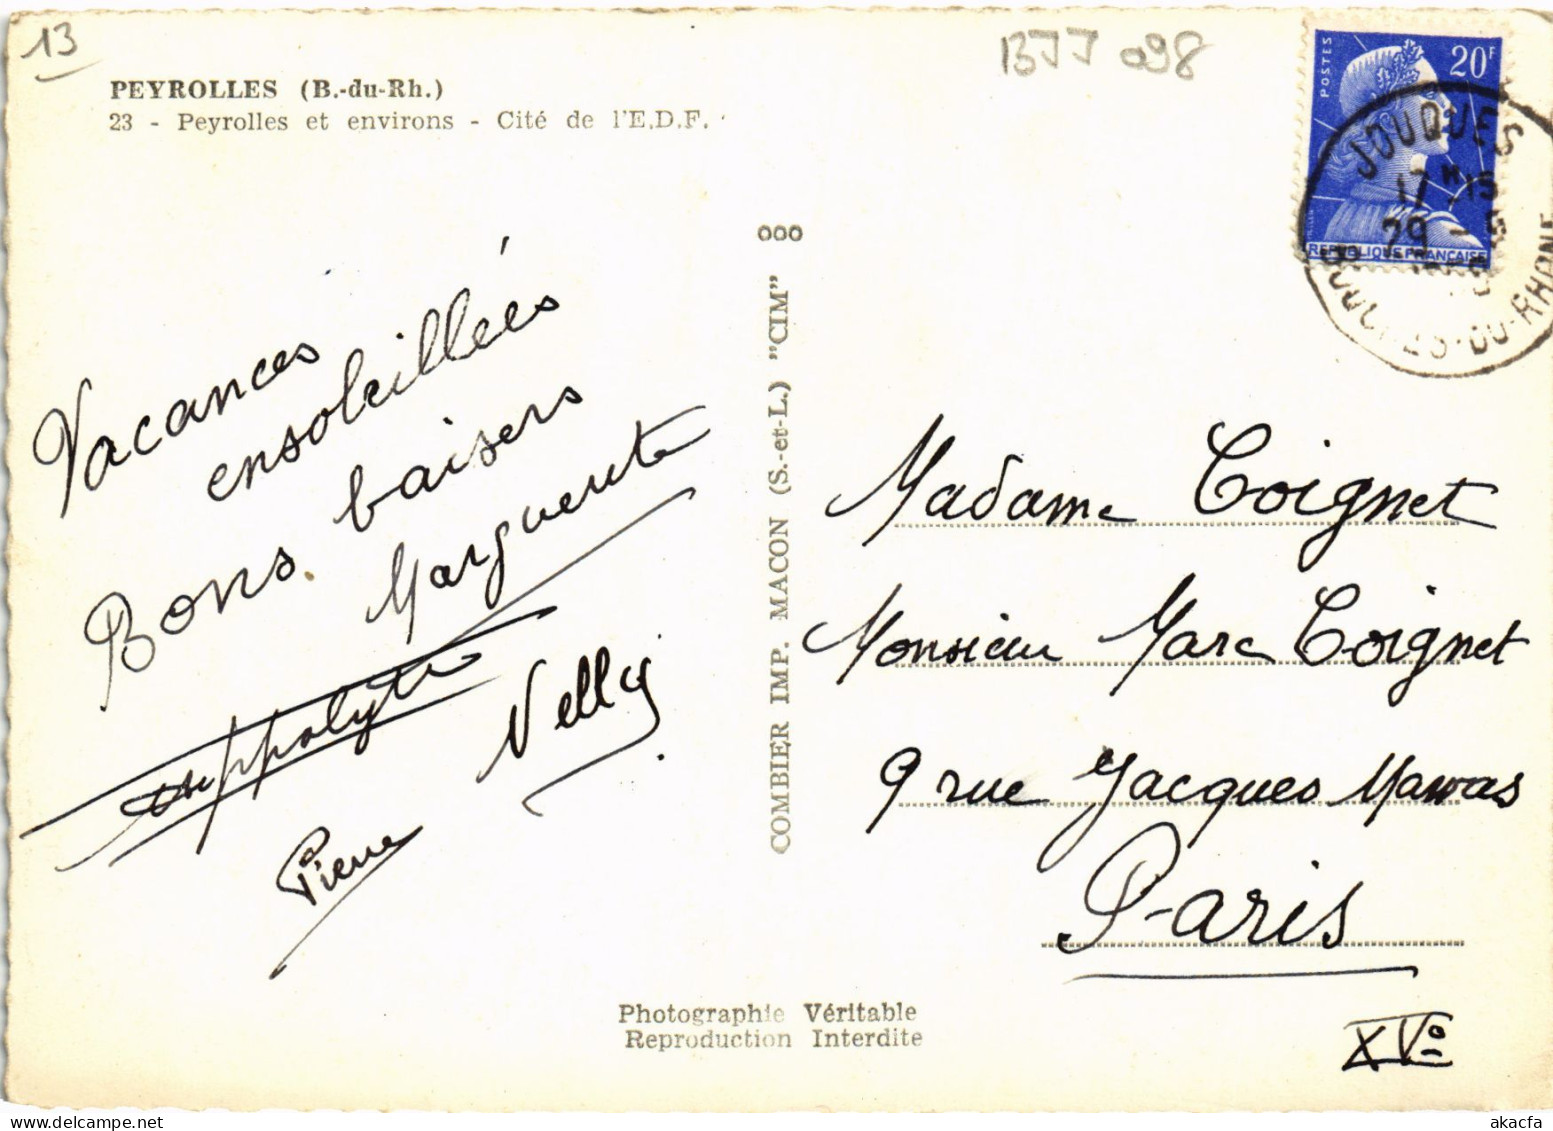 13
BJJ 098
PEYROLLES (B.-du-Rh.)
23 - Peyrolles et environs - Cité de l'E.D.F.
POSTES
20F
REPUBLIQUE FRANÇAISE
JOUQUES
17H15
29 - 
BOUCHES-DU-RHONE
Vacances
ensoleillées
Bons baisers
Marguerite
Nelly
Pierre
ooo
COMBIER IMP. MACON (S.-et-L.) "CIM"
Madame Coignet
Monsieur Marc Coignet
9 rue Jacques Mawas
Paris
XVo
Photographie Véritable
Reproduction Interdite
akacfa